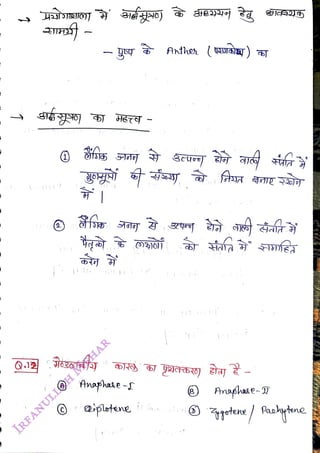 → प्रयोगशाला में अर्द्धसूत्रण के अध्ययन हेतु आवश्यक
सामग्री -
- पुष्प के Anther (परागकोश) का
→ अर्द्धसूत्रण का महत्त्व -
① लैंगिक जनन से उत्पन्न होने वाली संतति में
गुणसूत्रों की संख्या को नियत बनाए रखने
में |
② लैंगिक जनन से उत्पन्न होने वाली संतति में
पैतृकों के लक्षणों को संतति में समाहित
करने में
Q.12 मेण्डलीय कारक का पृथक्करण होता है -
Ⓐ Anaphase-I
Ⓑ Anaphase-II
Ⓒ Diplotene
Ⓓ Zygotene / Pachytene